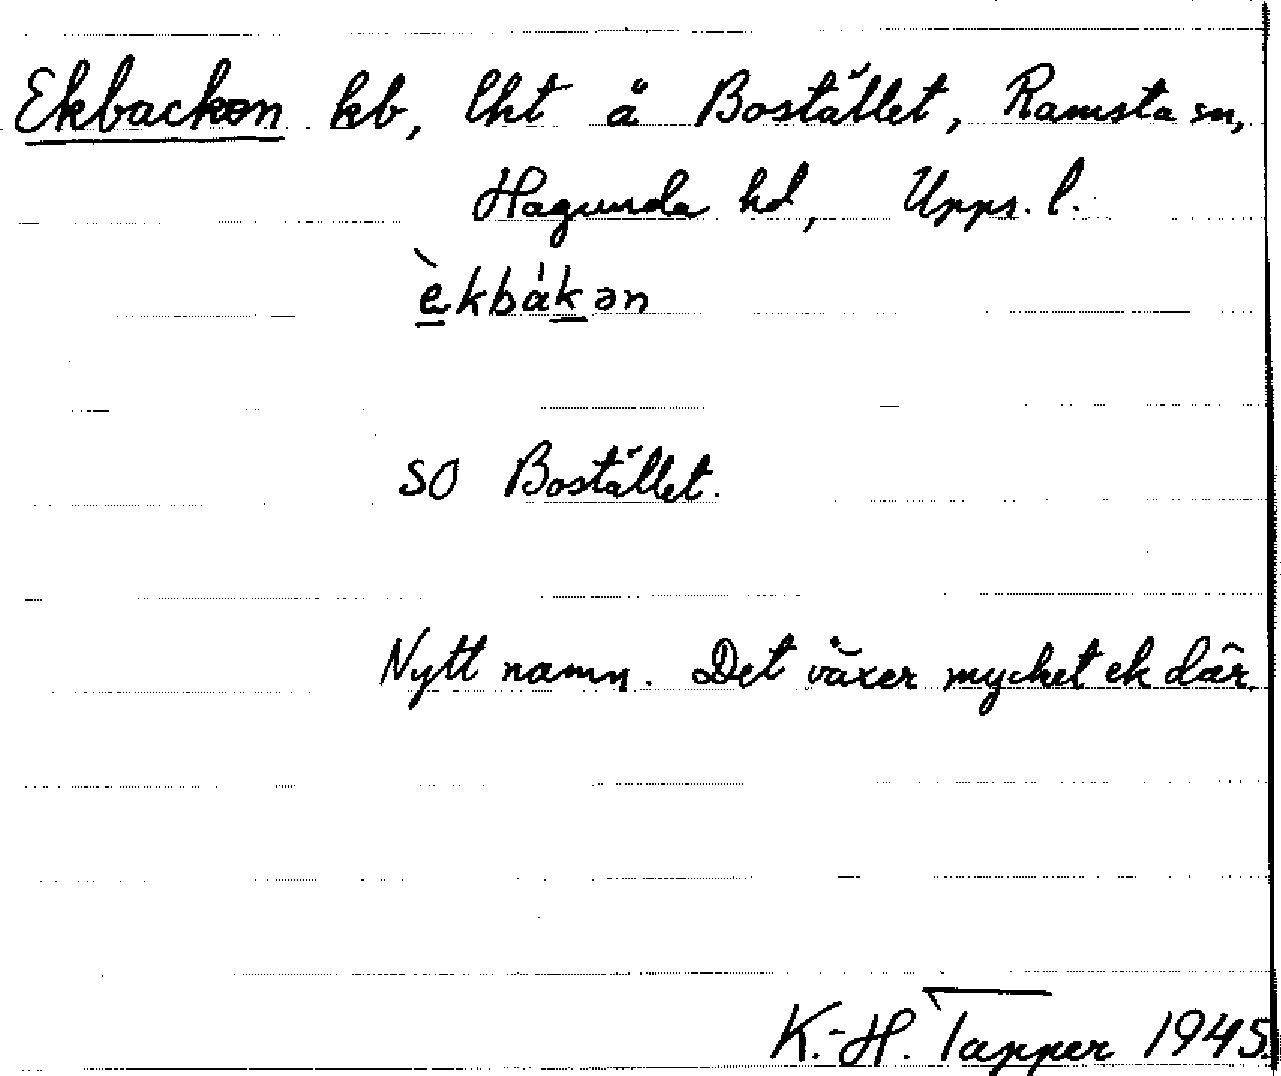 Ekbacken kb, lht å Bostället, Ramsta sn,
Hagunda hd, Upps. l.
è̲kbák̲ən
SO Bostället.
Nytt namn. Det växer mycket ek där.
K.-H. Tapper 1945.